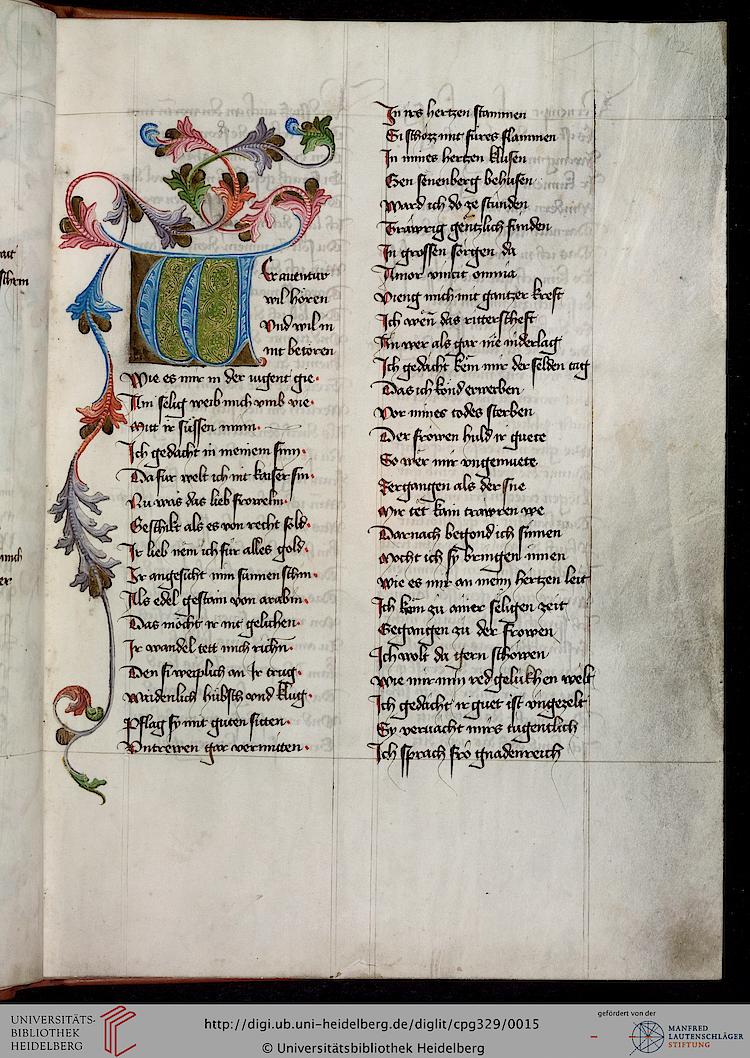 Wer auentur
wil hören
Vnd wil in
nit betören
Wie es mir in der iugent gie
Ain selig weib mich vmb vie
Mitt ir süssen mim
Ich gedacht in meinem sinn
Dafur welt ich nit kaiser sin
Nu was das lieb frowelin
Geschikt als es von recht sold
Ir lieb nem ich für alles gold
Ir angesicht min sunnen schin
Als edel gestain von arabin
Das möcht ir nit gelichen
Ir wandel tett mich richn
Den si weiplich an Ir trug
Waidenlich hübsch vnd klug
Pflag sy mit guten sitten
Vntrewen gar vermitten
In irs hertzen stammen
Si schozz mit füres flammen
In mines hertzen klusen
Gen senenberg behusen
Ward ich do ze stunden
Trawrig gentzlich funden
In grossen sorgen da
Amor vincit omnia
Vieng mich mit gantzer kreft
Ich wen das ritterscheft
In wer als gar nie niderlag
Ich gedacht kem mir der selden tag
Das ich kond erwerben
Vor mines todes sterben
Der frowen huld ir guete
So wer mir vngemuete
Zergangen als der sne
Mir tet kain trawren we
Darnach begond ich sinnen
Mocht ich sy bringen innen
Wie es mir an mein hertzen leit
Ich kem zu ainer seligen zeit
Gegangen zu der frowen
Ich wolt da gern schowen
Wie mir min red gelukhen welt
Ich gedacht ir guet ist vngezelt
Sy veruacht mirs tugentlich
Ich sprach fro gnadenreich
UNIVERSITÄTS-
BIBLIOTHEK
HEIDELBERG
http://digi.ub.uni-heidelberg.de/diglit/cpg329/0015
© Universitätsbibliothek Heidelberg
gefördert von der
MANFRED
LAUTENSCHLÄGER
STIFTUNG